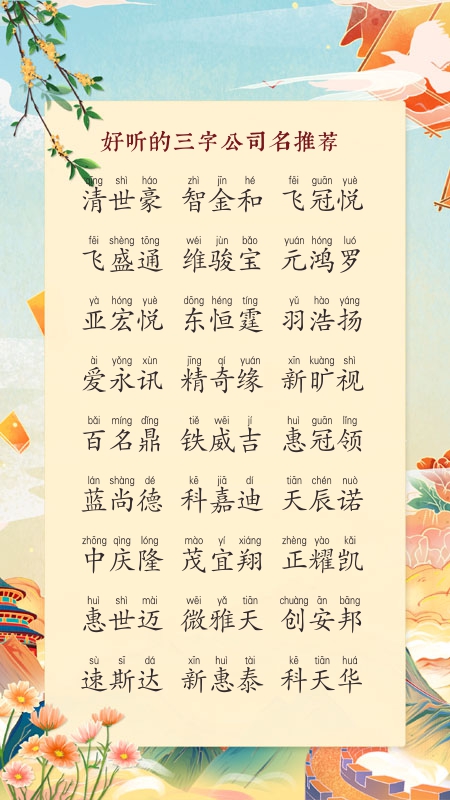 好听的三字公司名推荐
qīng shì háo zhì jīn hé fēi guān yuè
清世豪 智金和 飞冠悦
fēi shèng tōng wéi jùn bǎo yuán hóng luó
飞盛通 维骏宝 元鸿罗
yà hóng yuè dōng héng tíng yǔ hào yáng
亚宏悦 东恒霆 羽浩扬
ài yǒng xùn jīng qí yuán xīn kuàng shì
爱永讯 精奇缘 新旷视
bǎi míng dǐng tiě wēi jí huì guān lǐng
百名鼎 铁威吉 惠冠领
lán shàng dé kē jiā dí tiān chén nuò
蓝尚德 科嘉迪 天辰诺
zhōng qìng lóng mào yí xiáng zhèng yào kǎi
中庆隆 茂宜翔 正耀凯
huì shì mài wēi yǎ tiān chuàng ān bāng
惠世迈 微雅天 创安邦
sù sī dá xīn huì tài kē tiān huá
速斯达 新惠泰 科天华